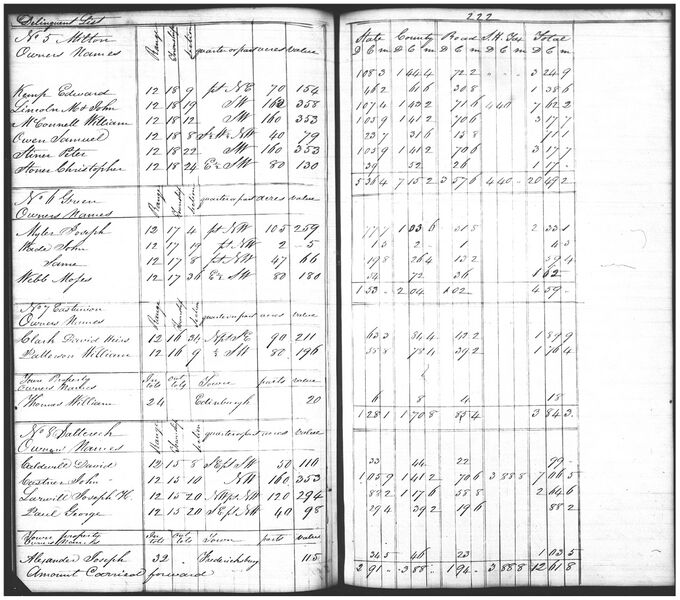 Delinquent List
222
No 5 Milton
Owners Names
Range Township Section quarter or part acres value
State County Road Total
D C m D C m D C m D C m D C m
Kemp Edward 12 18 9 pt NE 70 154
Lincoln M & John 12 18 19 SW 162 358
McConnell William 12 18 12 SW 160 353
Owen Samuel 12 18 8 40 79
Stiner Peter 12 18 22 SW 160 353
Stoner Christopher 12 18 24 E½ SW 80 130
108 3 144 4 72 2 3 24 9
46 2 61 6 30 8 1 38 6
107 4 143 2 71 6 4 40 7 62 2
105 9 141 2 70 6 3 17 7
23 7 31 6 15 8 71 1
105 9 141 2 70 6 3 17 7
39 52 26 1 17
5 36 4 7 15 2 3 57 6 4 40 20 49 2
No 6 Green
Owners Names
Range Township Section quarter or part acres value
Myler Joseph 12 17 4 pt NW 105 259
Wade John 12 17 19 pt NW 2 5
Same 12 17 8 pt NW 47 66
Webb Moses 12 17 36 E½ SW 80 180
77 7 103 6 51 8 2 33 1
1 5 2 1 4 5
19 8 26 4 13 2 59 4
54 72 36 1 62
1 53 2 04 1 02 4 59
No 7 Eastunion
Owners Names
Range Township Section quarter or part acres value
Clark David Heirs 12 16 34 N pt SE 90 211
Patterson William 12 16 9 ½ SW 80 196
63 3 84 4 42 2 1 89 9
58 8 78 4 39 2 1 76 4
Town Property
Owners Names
In Lots Out Lots Town parts value
Thomas William 24 Edinburgh 20
6 8 4 18
1 28 1 1 70 8 85 4 3 84 3
No 8 Saltcreek
Owners Names
Range Township Section quarter or part acres value
Caldwell David 12 15 8 SE pt SW 50 110
Castner John 12 15 10 NW 160 353
Joseph H. 12 15 20 120 294
Paul George 12 15 20 SE pt NW 40 98
33 44 22 99
105 9 141 2 70 6 3 88 8 7 06 5
88 2 117 6 58 8 2 64 6
29 4 39 2 19 6 88 2
Town property
Owners Names
In Lots Out Lots Town parts value
Alexander Joseph 32 Fredericksburg 115
34 5 46 23 1 03 5
Amount Carried forward
2 91 3 88 1 94 3 88 8 12 61 8